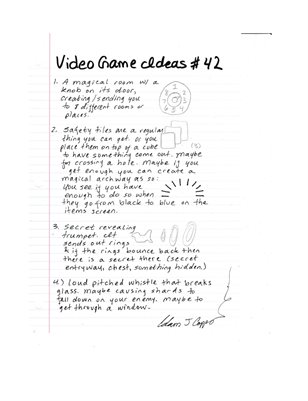 Video Game Ideas #42
1. A magical room w/ a
knob on its door,
creating/sending you
to 8 different rooms or
places.
2. Safety tiles are a regular
thing you can get. or you
place them on top of a cube
to have something come out. maybe
for crossing a hole. Maybe if you
get enough you can create a
magical archway as so:
You see if you have
enough to do so when
they go from black to blue on the
items screen.
3. Secret revealing
trumpet. it
sends out rings
& if the rings bounce back then
there is a secret there (secret
entryway, chest, something hidden)
4.) Loud pitched whistle that breaks
glass. maybe causing shards to
fall down on your enemy. maybe to
get through a window.
Adam J